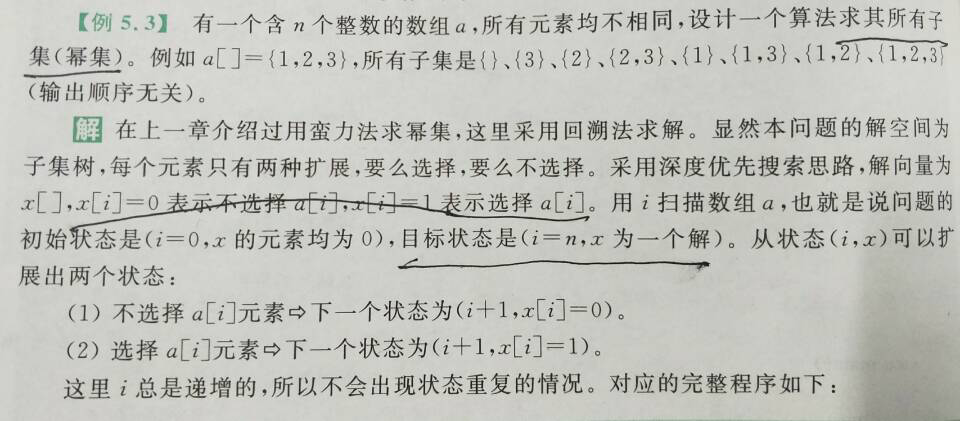 【例 5.3】 有一个含 n 个整数的数组 a,所有元素均不相同,设计一个算法求其所有子
集(幂集)。例如 a[]={1,2,3},所有子集是{}、{3}、{2}、{2,3}、{1}、{1,3}、{1,2}、{1,2,3}
(输出顺序无关)。
解 在上一章介绍过用蛮力法求幂集,这里采用回溯法求解。显然本问题的解空间为
子集树,每个元素只有两种扩展,要么选择,要么不选择。采用深度优先搜索思路,解向量为
x[],x[i]=0 表示不选择 a[i],x[i]=1 表示选择 a[i]。用 i 扫描数组 a,也就是说问题的
初始状态是(i=0,x 的元素均为 0),目标状态是(i=n,x 为一个解)。从状态(i,x)可以扩
展出两个状态:
(1) 不选择 a[i]元素⇨下一个状态为(i+1,x[i]=0)。
(2) 选择 a[i]元素⇨下一个状态为(i+1,x[i]=1)。
这里 i 总是递增的,所以不会出现状态重复的情况。对应的完整程序如下: